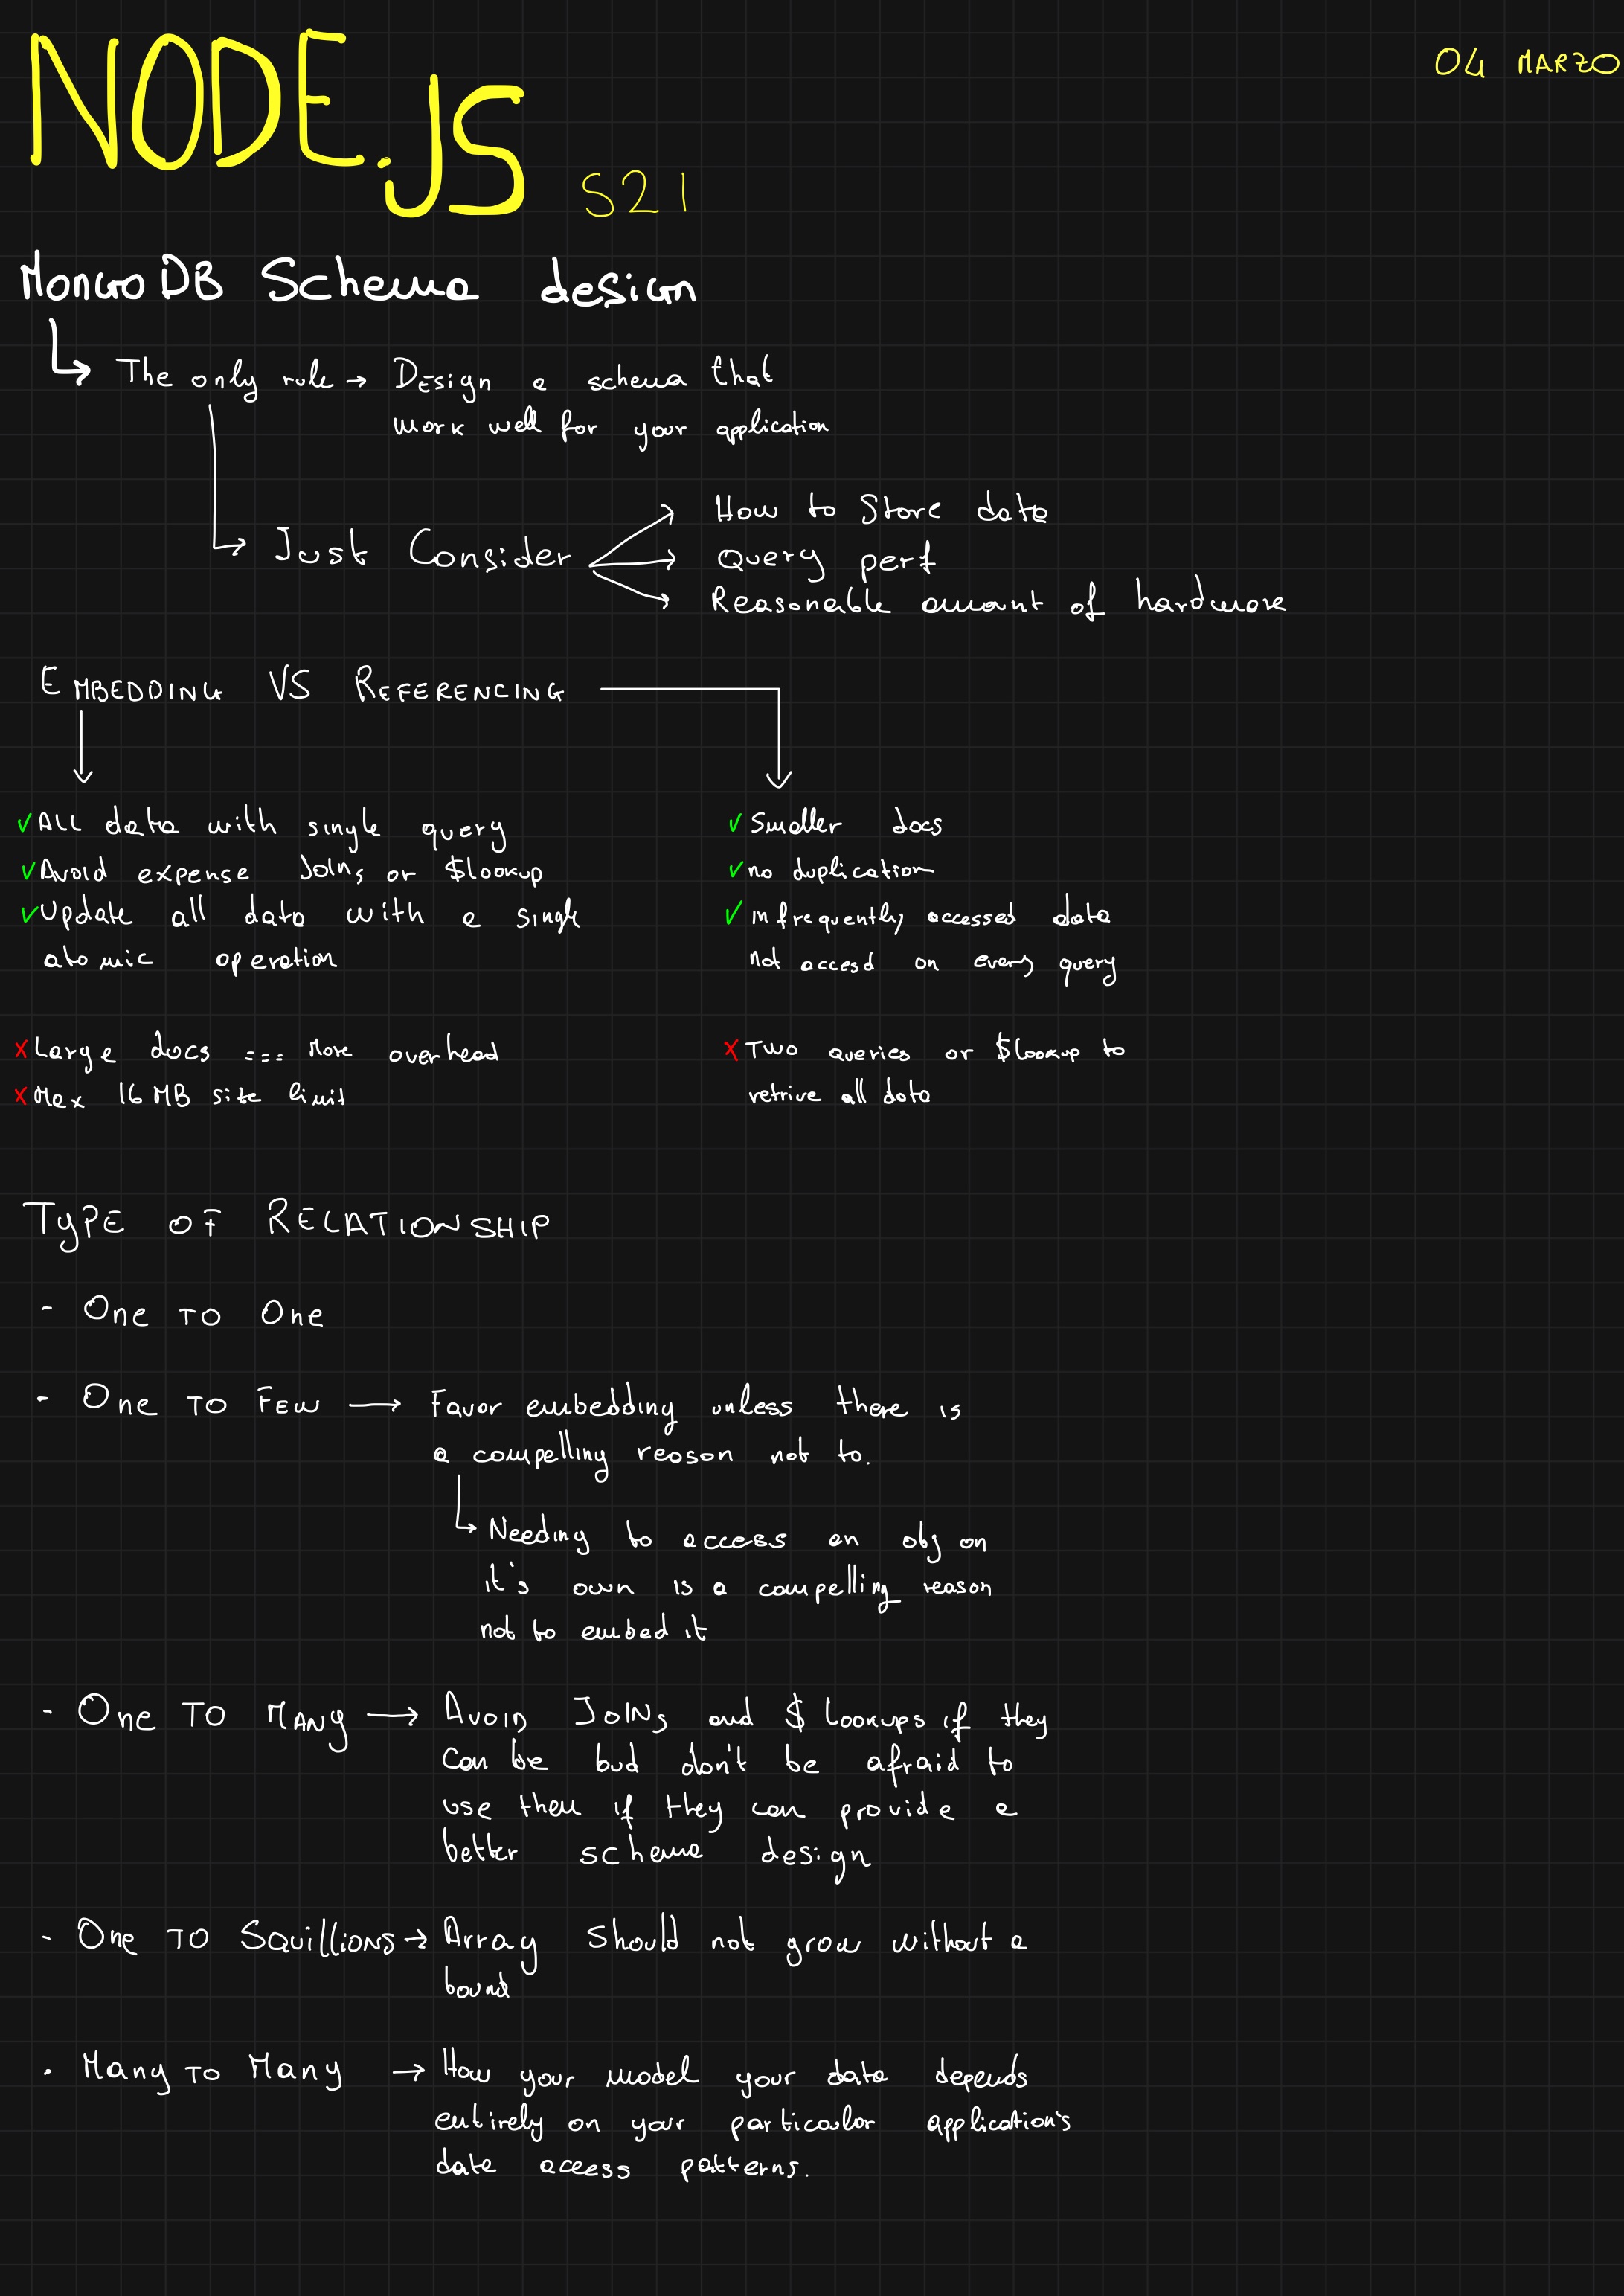 NODE.JS S21
04 MARZO
MongoDB Schema design
The only rule → Design a schema that
work well for your application
Just Consider
How to Store data
Query perf
Reasonable amount of hardware
EMBEDDING VS REFERENCING
✓ ALL data with single query
✓ Avoid expense Joins or $lookup
✓ Update all data with a single
atomic operation
X Large docs === More overhead
X Max 16 MB size limit
✓ Smaller docs
✓ no duplication
✓ infrequently accessed data
not accesd on every query
X TWO queries or $lookup to
retrive all data
TYPE OF RELATIONSHIP
- One TO One
- One TO FEW → Favor embedding unless there is
a compelling reason not to.
Needing to access an obj on
it's own is a compelling reason
not to embed it
- One TO MANY → AVOID JOINs and $ Lookups if they
Can be bud don't be afraid to
use them if they can provide a
better schema design
- One TO Squillions → Array should not grow without a
bound
- Many TO Many → How your model your data depends
entirely on your particular application's
data access patterns.